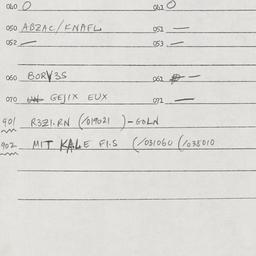 060 O 061 O
050 ABZAC/KNAFL 051 —
052 — 053 —
060 BORV3S 061 —
070 GEJIX EUX 071 —
901 R3Z1.RN (/019021 )-GOLN
902 MIT KALE F1.S (/031060 (/038010